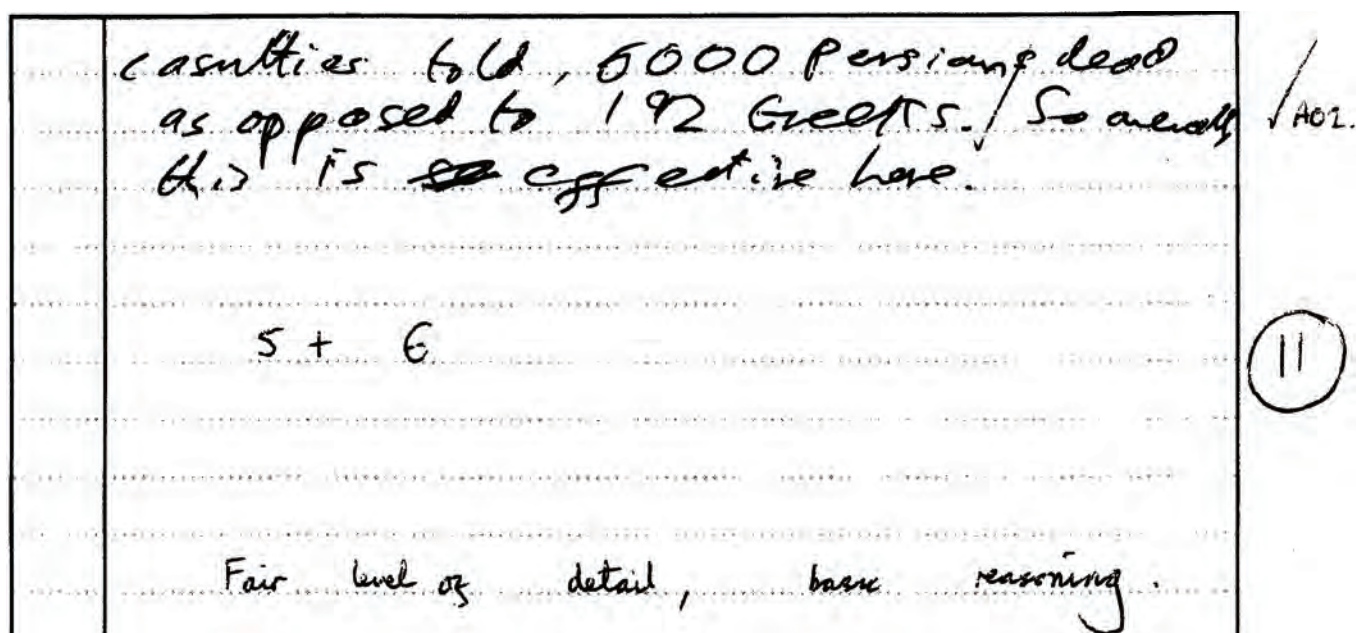 casulties told, 6000 Persians dead
as opposed to 192 Greeks. So overall
this is effective here.
AO2.
5 + 6
11
Fair level of detail, basic reasoning.